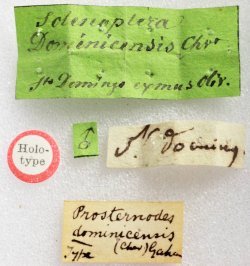 Solenoptera
Dominicensis Chvr
St Domingo cymus Oliv.
Holo-
type
♂
N. Doming.
Prosternodes
dominicensis
Type (Chev) Gahan